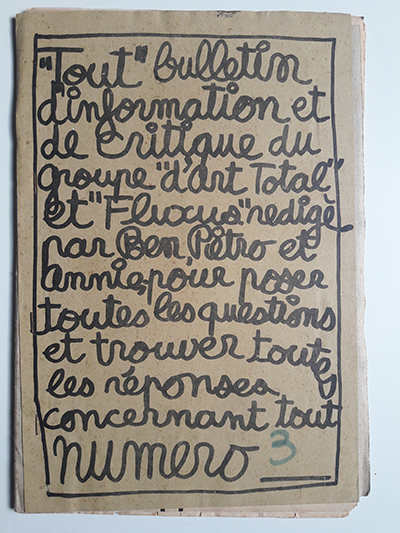 "Tout" bulletin
d'information et
de critique du
groupe "d'art Total"
et "Fluxus" redigé
par Ben, Pétro et
Annie, pour poser
toutes les questions
et trouver toutes
les réponses
concernant tout
numero 3